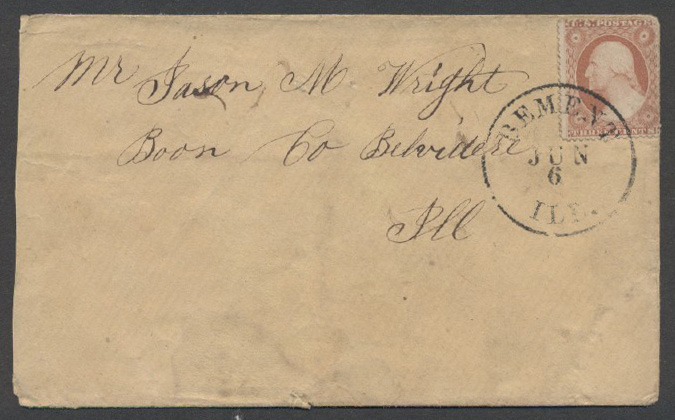 U.S. POSTAGE
THREE CENTS
BEMENT
JUN
6
ILL.
Mr Jason, M. Wright
Boon Co Belvidere
Ill